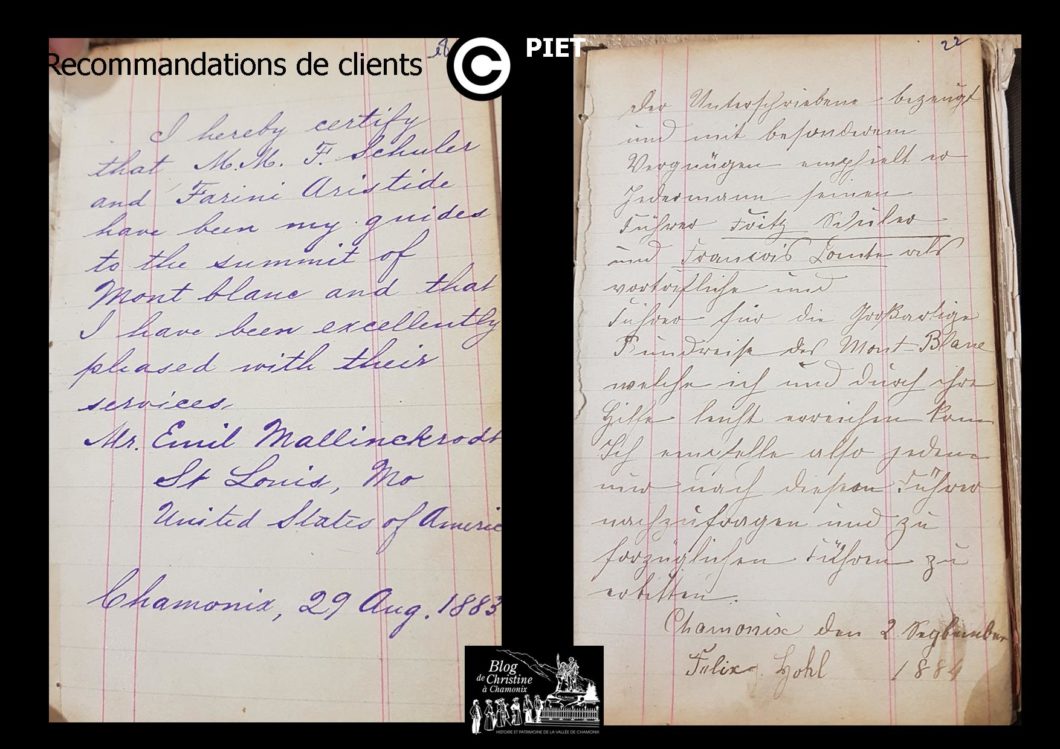 Recommandations de clients
© PIET
I hereby certify
that M.M. F. Schuler
and Farini Aristide
have been my guides
to the summit of
Mont blanc and that
I have been excellently
pleased with their
services,
Mr. Emil Mallinckrodt
St Louis, Mo
United States of Americ
Chamonix, 29 Aug. 1883
22
Der Unterschriebene bezeugt
und mit besonderem
Vergnügen empfielt er
Jedermann seinen
Führer Fritz Schuler
und François Comte als
vortrefliche und
Führer für die Großartige
Rundreise des Mont-Blanc
welche ich und durch ihre
Hilfe leicht erreichen kan
Ich empfelle also jedem
nur nach diesen Führer
nachzufragen und zu
forzüglichen Führen zu
erbitten.
Chamonix den 2 September
Felix Hohl 1884
Blog
de Christine
à Chamonix
HISTOIRE ET PATRIMOINE DE LA VALLÉE DE CHAMONIX